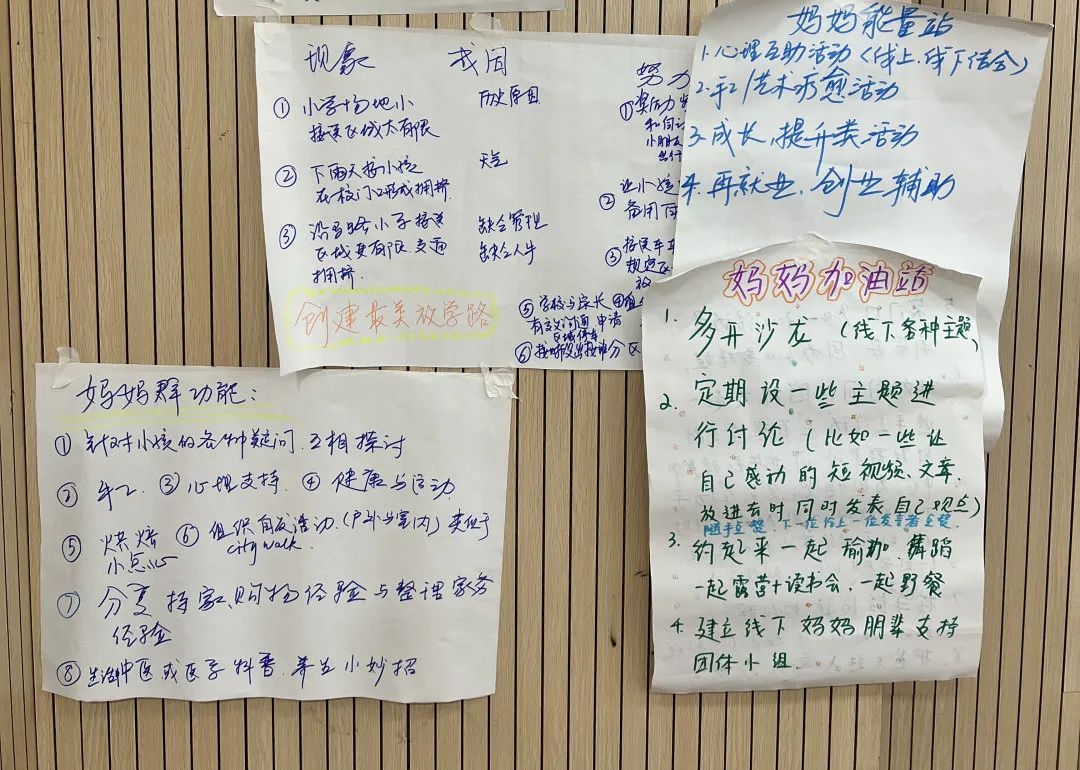 现象 我因 努力
① 小学场地小 历史原因
接送区域太有限
② 下雨天接小孩 天气
在校门口形成拥挤
③ 沿马路小学接送 缺乏管理
区域更有限.交通 缺乏人手
拥挤.
创建最美放学路
①
和同
小朋友
② 让小孩
备用雨
③ 接送车
规定区
⑤ 学校与家长
有交叉时通申请
区域停车
⑥ 分区
妈妈能量站
1.心理互助活动(线上.线下结合)
2.手工/艺术疗愈活动
3.成长.提升类活动
4.再就业.创业辅助
妈妈加油站
1. 多开沙龙 (线下各种主题)
2. 定期设一些主题进
行讨论 (比如一些让
自己感动的短视频.文章.
放进去时同时发表自己观点)
随手点赞.下一位给上一位发言者点赞.
3. 约起来一起瑜伽.舞蹈
一起露营+读书会.一起野餐
4. 建立线下妈妈朋辈支持
团体小组.
妈妈群功能:
① 针对小孩的各种疑问.互相探讨
② 手工. ③ 心理支持. ④ 健康与运动.
⑤ 烘焙 ⑥ 组织自发活动.(户外与室内) 类似于
小点心 city walk.
⑦ 分享持家.购物经验与整理家务
经验
⑧ 生活中医或医学科普.养生小妙招